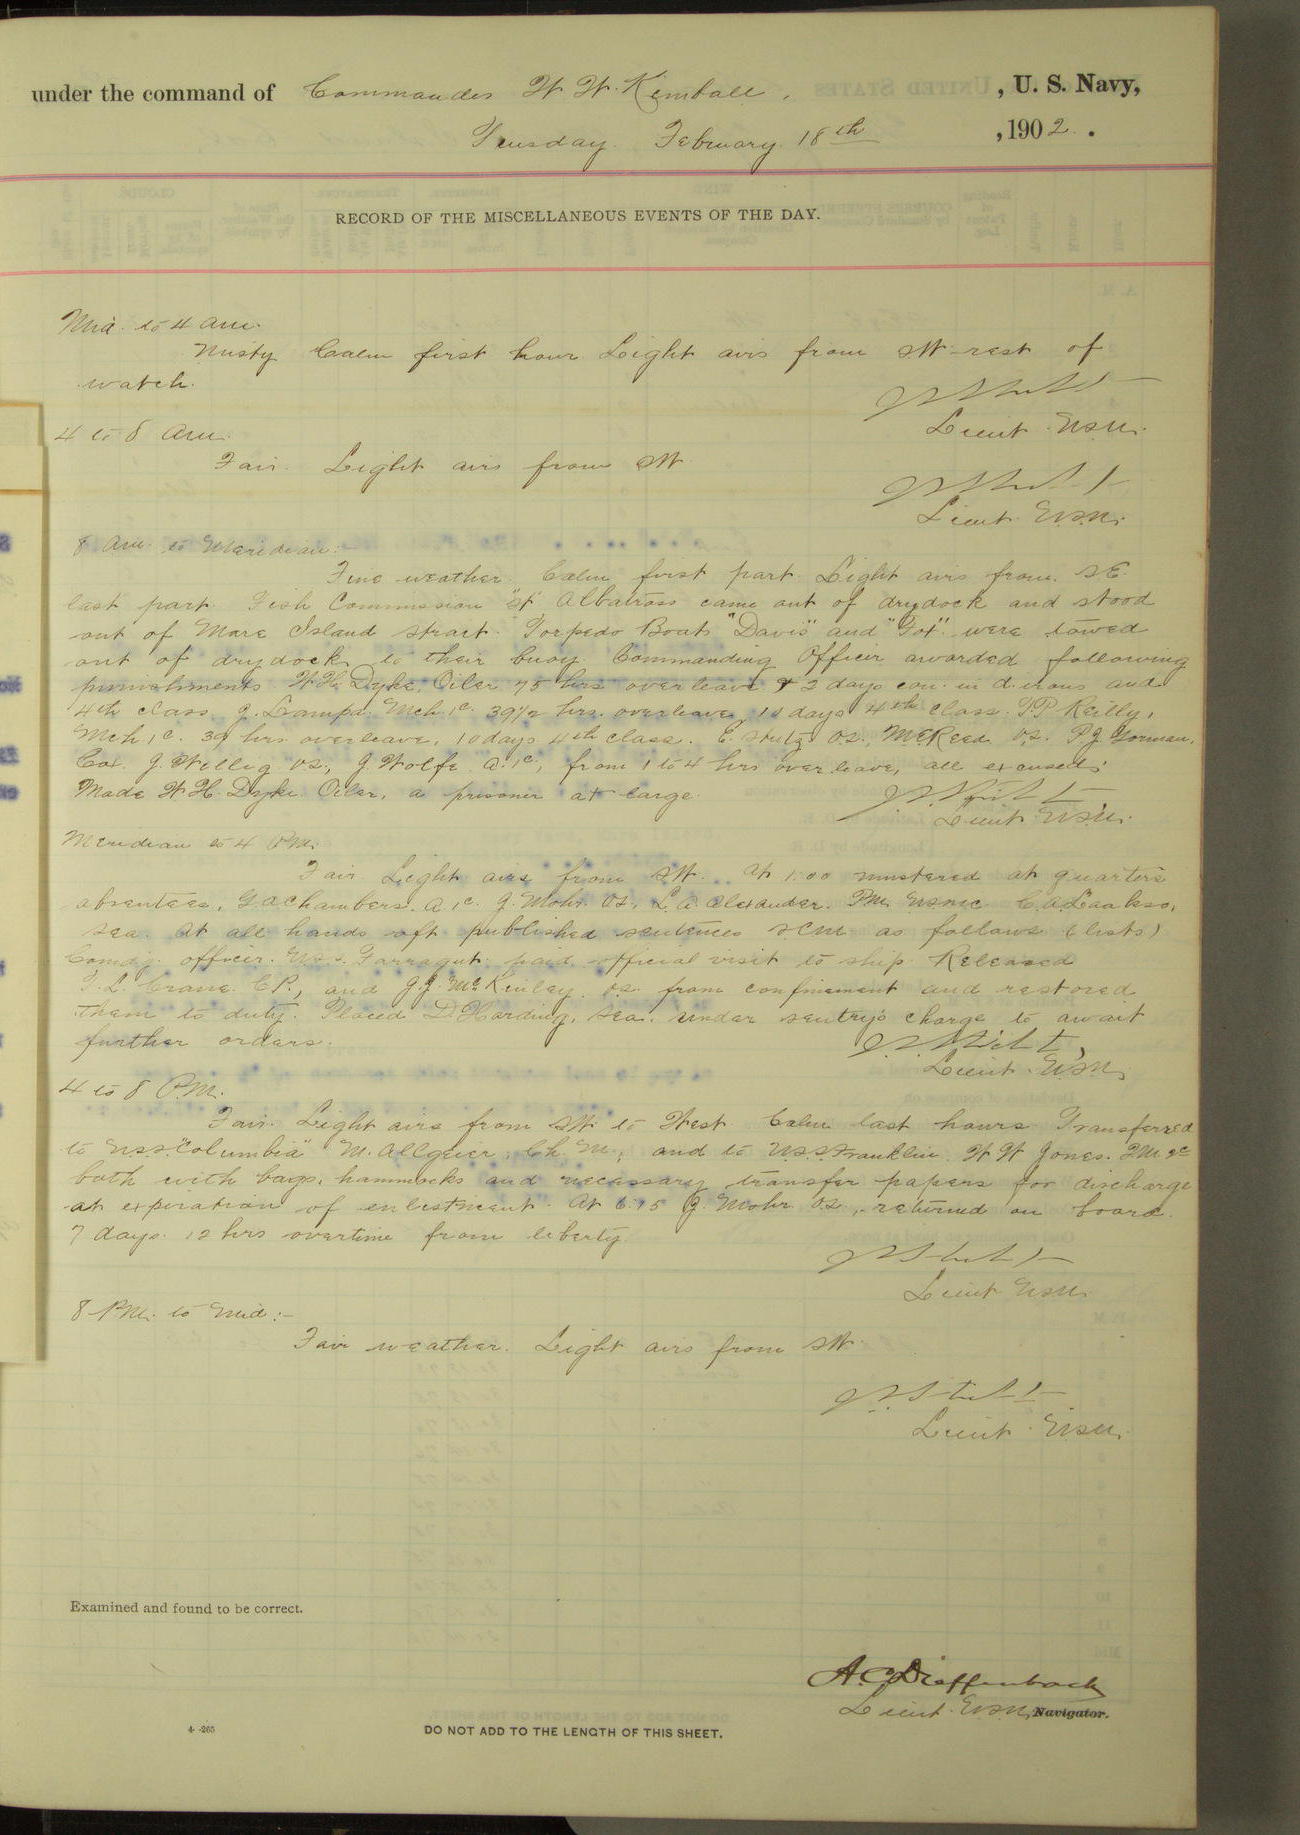 under the command of Commander W. W. Kimball, , U. S. Navy,
Tuesday February 18th , 1902.
RECORD OF THE MISCELLANEOUS EVENTS OF THE DAY.
Mid. to 4 am.
Misty Calm first hour Light airs from SW rest of
watch.
Lieut. USN.
4 to 8 am.
Fair. Light airs from SW.
Lieut. USN.
8 am. to Meridian:-
Fine weather. Calm first part. Light airs from SE
last part. Fish Commission Str Albatross came out of drydock and stood
out of Mare Island strait. Torpedo Boats "Davis" and "Fox" were towed
out of drydock to their buoy. Commanding Officer awarded following
punishments W.H. Dyke, Oiler 75 hrs overleave & 2 days con. in d. irons and
4th class. J. Mch 1c. 39 1/2 hrs. overleave, 10 days 4th class. T.P. Reilly,
Mch 1c. 39 hrs overleave, 10 days 4th class. E. Stutz O.S., McReed O.S. P.J. Gorman,
Cox. J. Willig O.S., J. Wolfe A.1c, from 1 to 4 hrs overleave, all excused.
Made W.H. Dyke Oiler, a prisoner at large.
Lieut USN.
Meridian to 4 P.M.
Fair. Light airs from SW. At 1:00 mustered at quarters
absentees, G.A. Chambers. A.1c. J. Mohr. O.S., L.A. Alexander. Pvt. USMC C.A. Laakso,
Sea. At all hands aft published sentences SCM as follows (lists)
Comdg. officer. U.S.S. Farragut paid official visit to ship. Released
F.L. Crane C.P., and J.J. McKinley O.S. from confinement and restored
them to duty. Placed D. Harding, Sea. under sentry's charge to await
further orders.
Lieut. USN.
4 to 8 P.M.
Fair. Light airs from SW. to West Calm last hours Transferred
to U.S.S. "Columbia" M. Allgeier, Ch. M., and to U.S.S. Franklin W.W. Jones. 2c
both with bags, hammocks and necessary transfer papers for discharge
at expiration of enlistment. At 6.15 J. Mohr O.S., returned on board.
7 days. 12 hrs overtime from liberty.
Lieut USN.
8 P.M. to Mid:-
Fair weather. Light airs from SW.
Lieut. USN.
Examined and found to be correct.
A. C. Dieffenbach
Lieut. USN, Navigator.
4-265
DO NOT ADD TO THE LENGTH OF THIS SHEET.